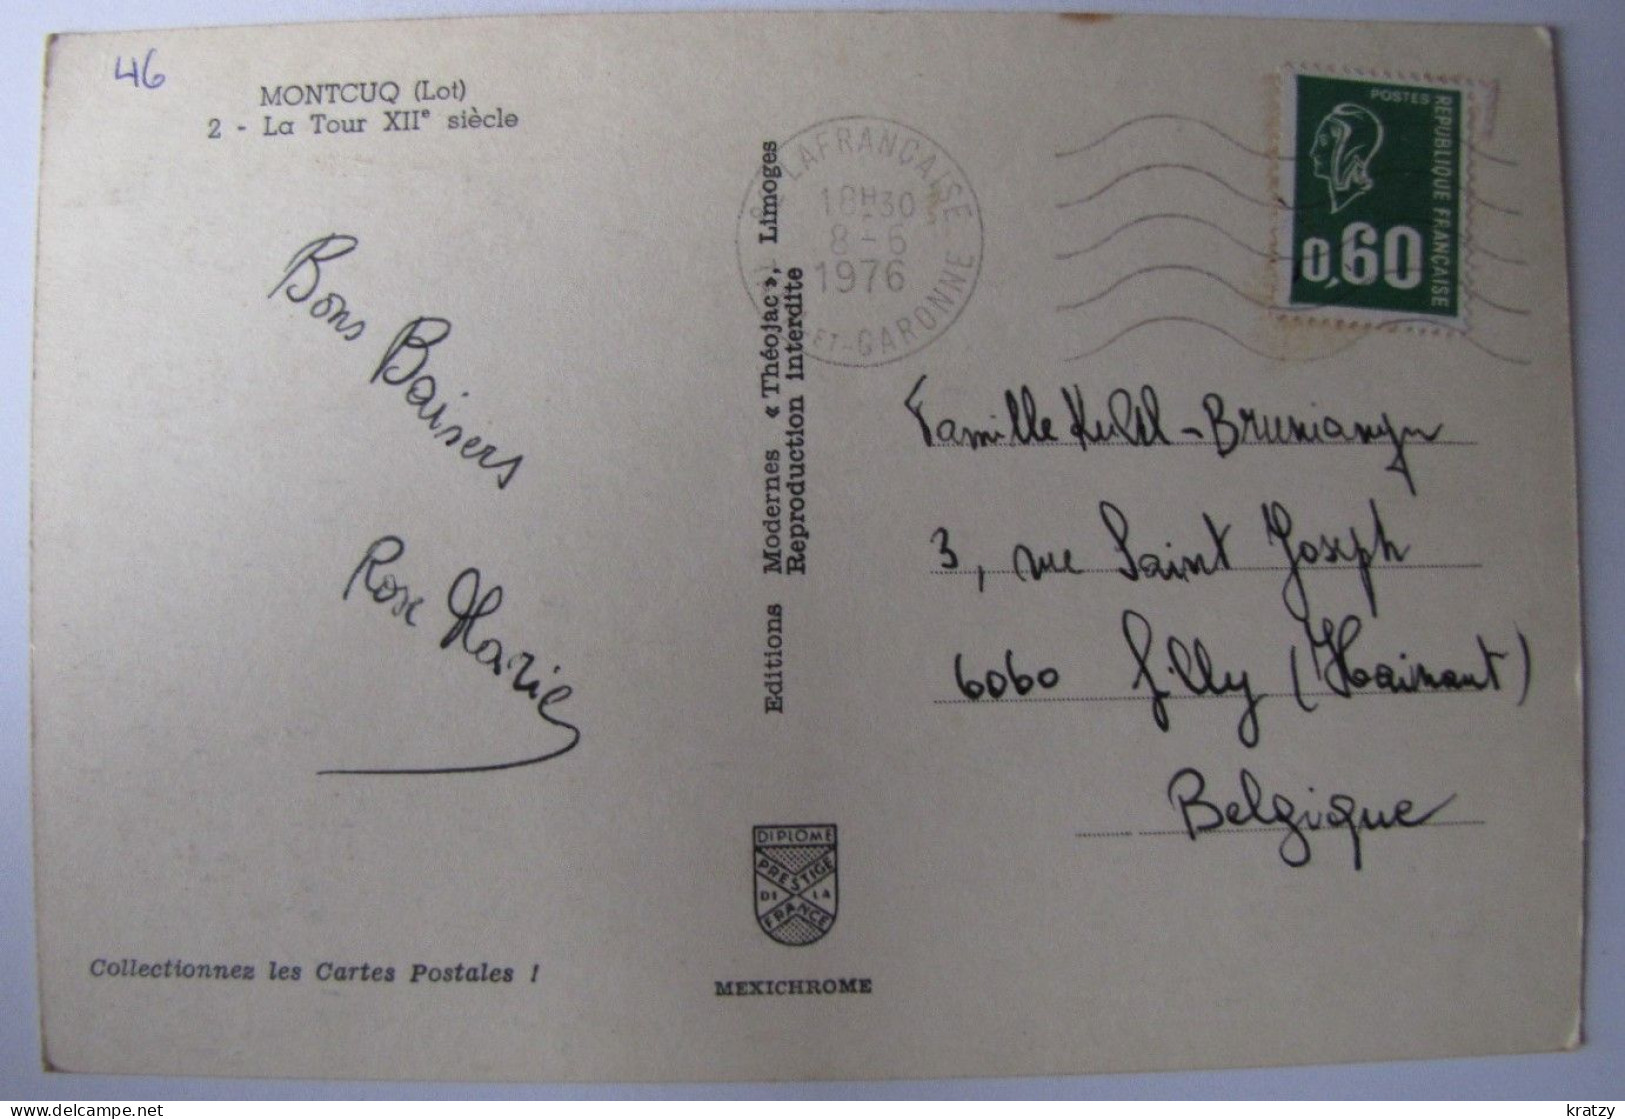 46
MONTCUQ (Lot)
2 - La Tour XIIe siècle
Bons Baisers
Rose Marie
Collectionnez les Cartes Postales !
Editions Modernes « Théojac », Limoges
Reproduction interdite
DIPLOME
PRESTIGE
DE LA
FRANCE
MEXICHROME
LAFRANCAISE
18H30
8-6
1976
ET-GARONNE
POSTES
REPUBLIQUE FRANCAISE
0,60
Famille
3, rue Saint Joseph
6060 Gilly (Hainaut)
Belgique
delcampe.net
kratzy